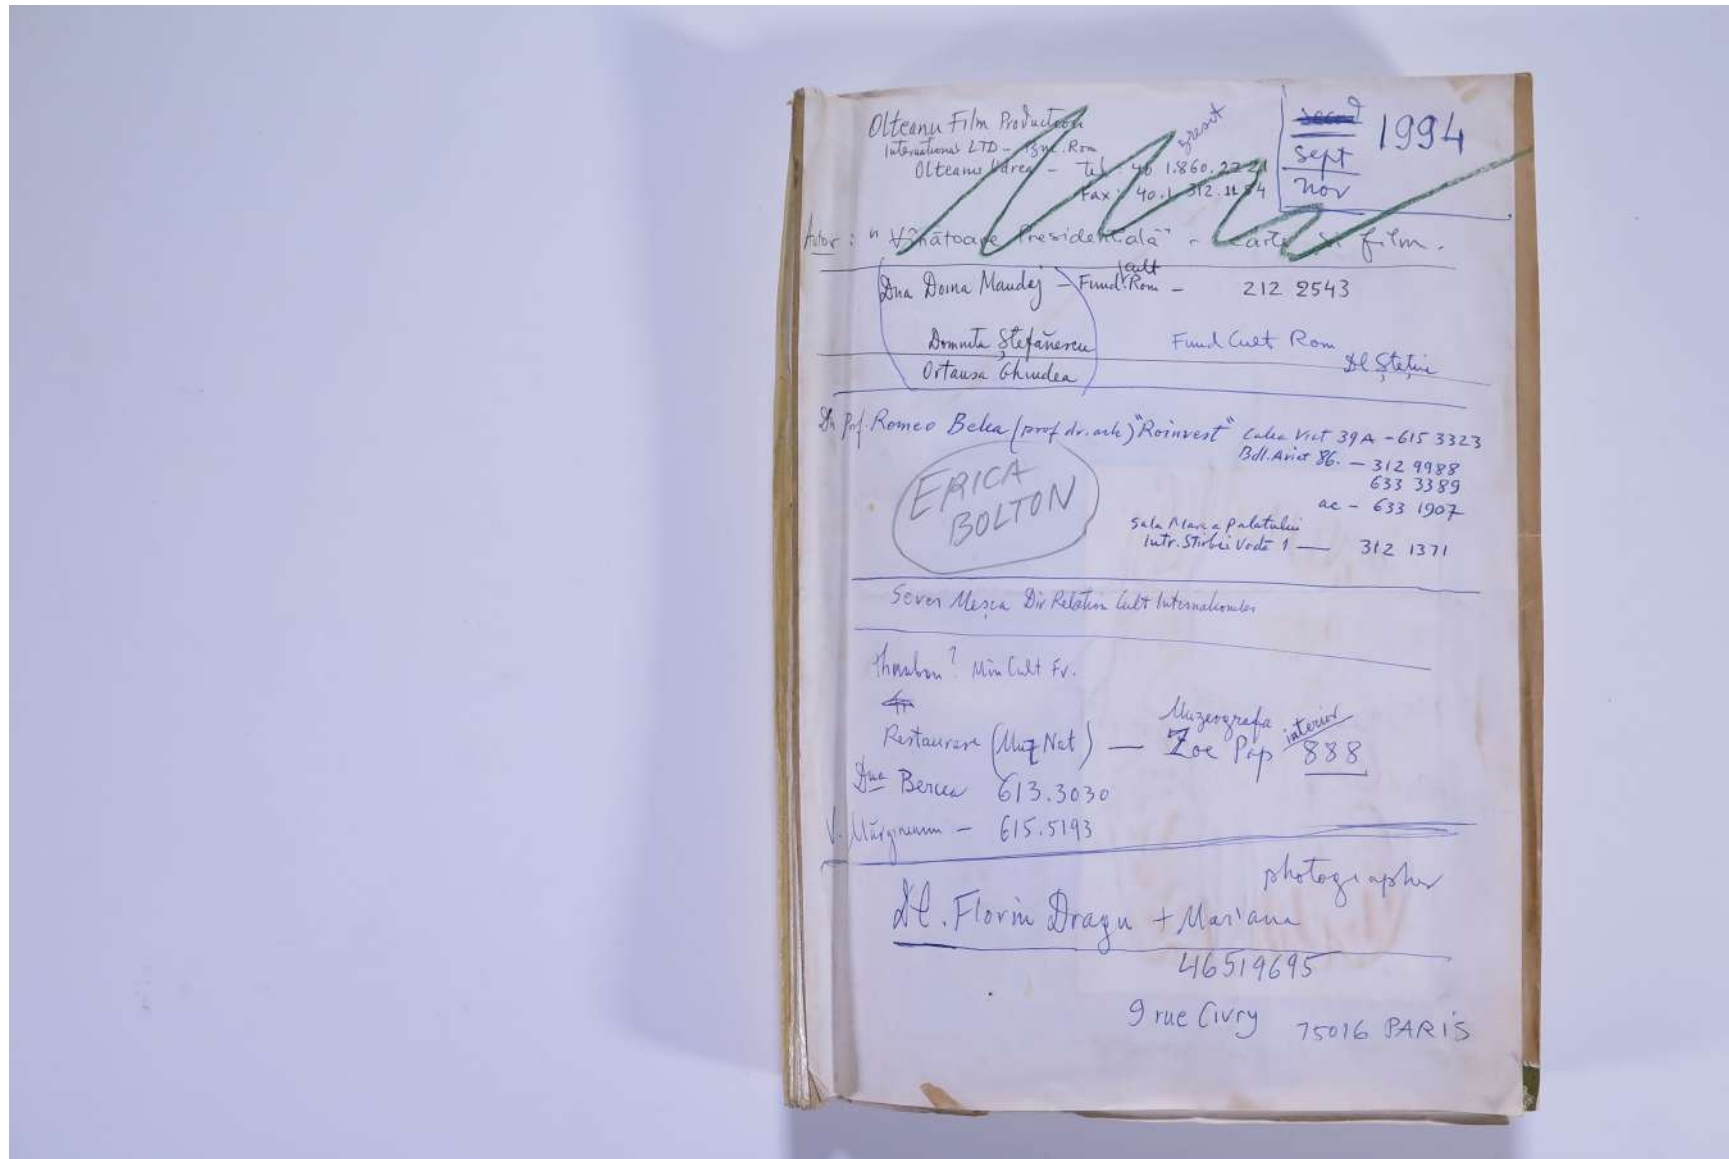 Olteanu Film Production
International LTD - Buc. Rom
gresit
Olteanu - Tel: 40 1.860.222
Fax: 40.1.312.11 54
1994
sept
nov
Autor: "Vînătoare Presidentială" - carte și film.
Dna Doina Mandaj - Fund. Cult Rom - 212 2543
Domnita Ștefănescu Fund Cult Rom
Ortausa Ghindea Dl
Prof. Romeo Belea (prof dr. arh) "Roinvest" Calea Vict 39A - 615 3323
Bdl. Aviat 86. - 312 9988
633 3389
ac - 633 1907
ERICA
BOLTON
Sala Mare a Palatului
Intr. Stirbei Vodă 1 — 312 1371
Sever Dir Relation Cult Internationales
? Min Cult Fr.
Muzeografa
Restaurare (Muz Nat) — Zoe Pop interior 888
Dna Bercea 613.3030
V. Mărgineanu - 615.5193
photographer
Dl. Florin Dragu + Mariana
46519695
9 rue Civry 75016 PARIS